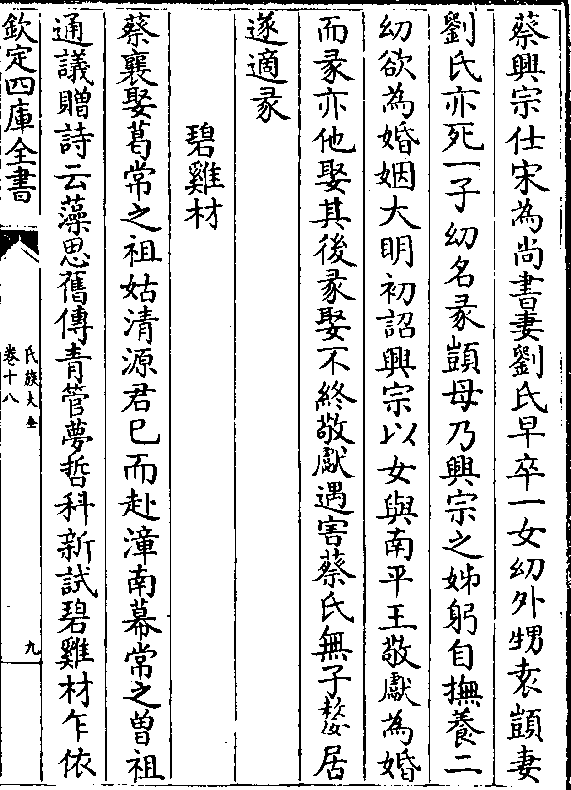 蔡興宗仕宋為尚書妻劉氏早卒一女幼外甥袁顗妻
劉氏亦死一子幼名彖顗母乃興宗之姊躬自撫養二
幼欲為婚姻大明初詔興宗以女與南平王敬獻為婚
而彖亦他娶其後彖娶不終敬獻遇害蔡氏無子嫠居
遂適彖
碧雞材
蔡襄娶葛常之祖姑清源君已而赴漳南幕常之曾祖
通議贈詩云藻思舊傳青管夢哲科新試碧雞材乍依
欽定四庫全書
氏族大全
卷十八
九